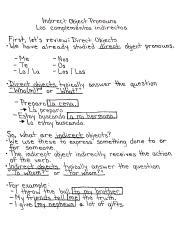 Indirect Object Pronouns
Los complementos indirectos
First, let's review: Direct Objects
• We have already studied direct object pronouns.
- Me - Nos
- Te - Os
- Lo | La - Los | Las
• Direct objects typically answer the question
"Who(m)?" or "What?"
- Preparo la cena.
→ La preparo
- Estoy buscando a mi hermano.
→ Lo estoy buscando
So, what are indirect objects?
• We use these to express something done to
or for someone.
• The indirect object indirectly receives the action
of the verb.
• Indirect objects typically answer the question
"To whom?" or "For whom?"
• For example:
- I throw the ball to my brother.
- My friends tell me the truth.
- I give my nephews a lot of gifts.